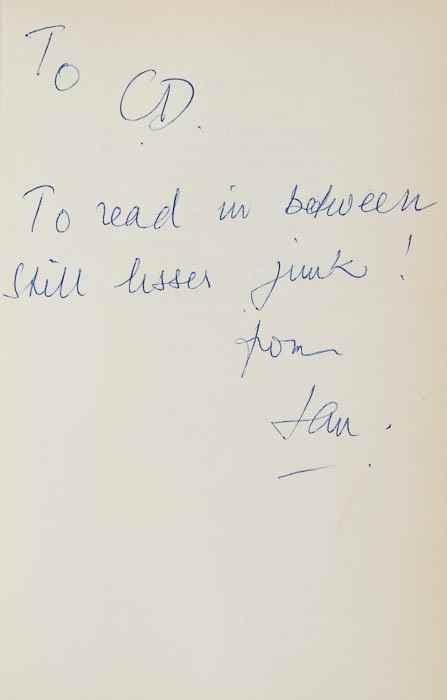 To
CD.
To read in between
still lesser junk!
from
Ian.